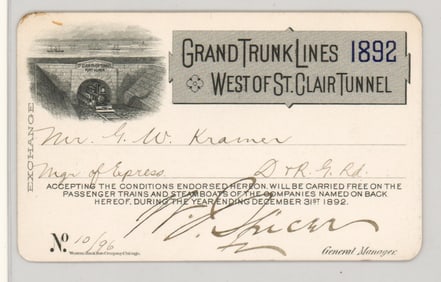 GRAND TRUNK LINES 1892
WEST OF ST. CLAIR TUNNEL
EXCHANGE
Mr. G. W. Kramer
Mgr of Epress. D & R. G. Rd.
ACCEPTING THE CONDITIONS ENDORSED HEREON, WILL BE CARRIED FREE ON THE
PASSENGER TRAINS AND STEAMBOATS OF THE COMPANIES NAMED ON BACK
HEREOF, DURING THE YEAR ENDING DECEMBER 31ST 1892.
W. J. Spicer
No. 10/96
General Manager